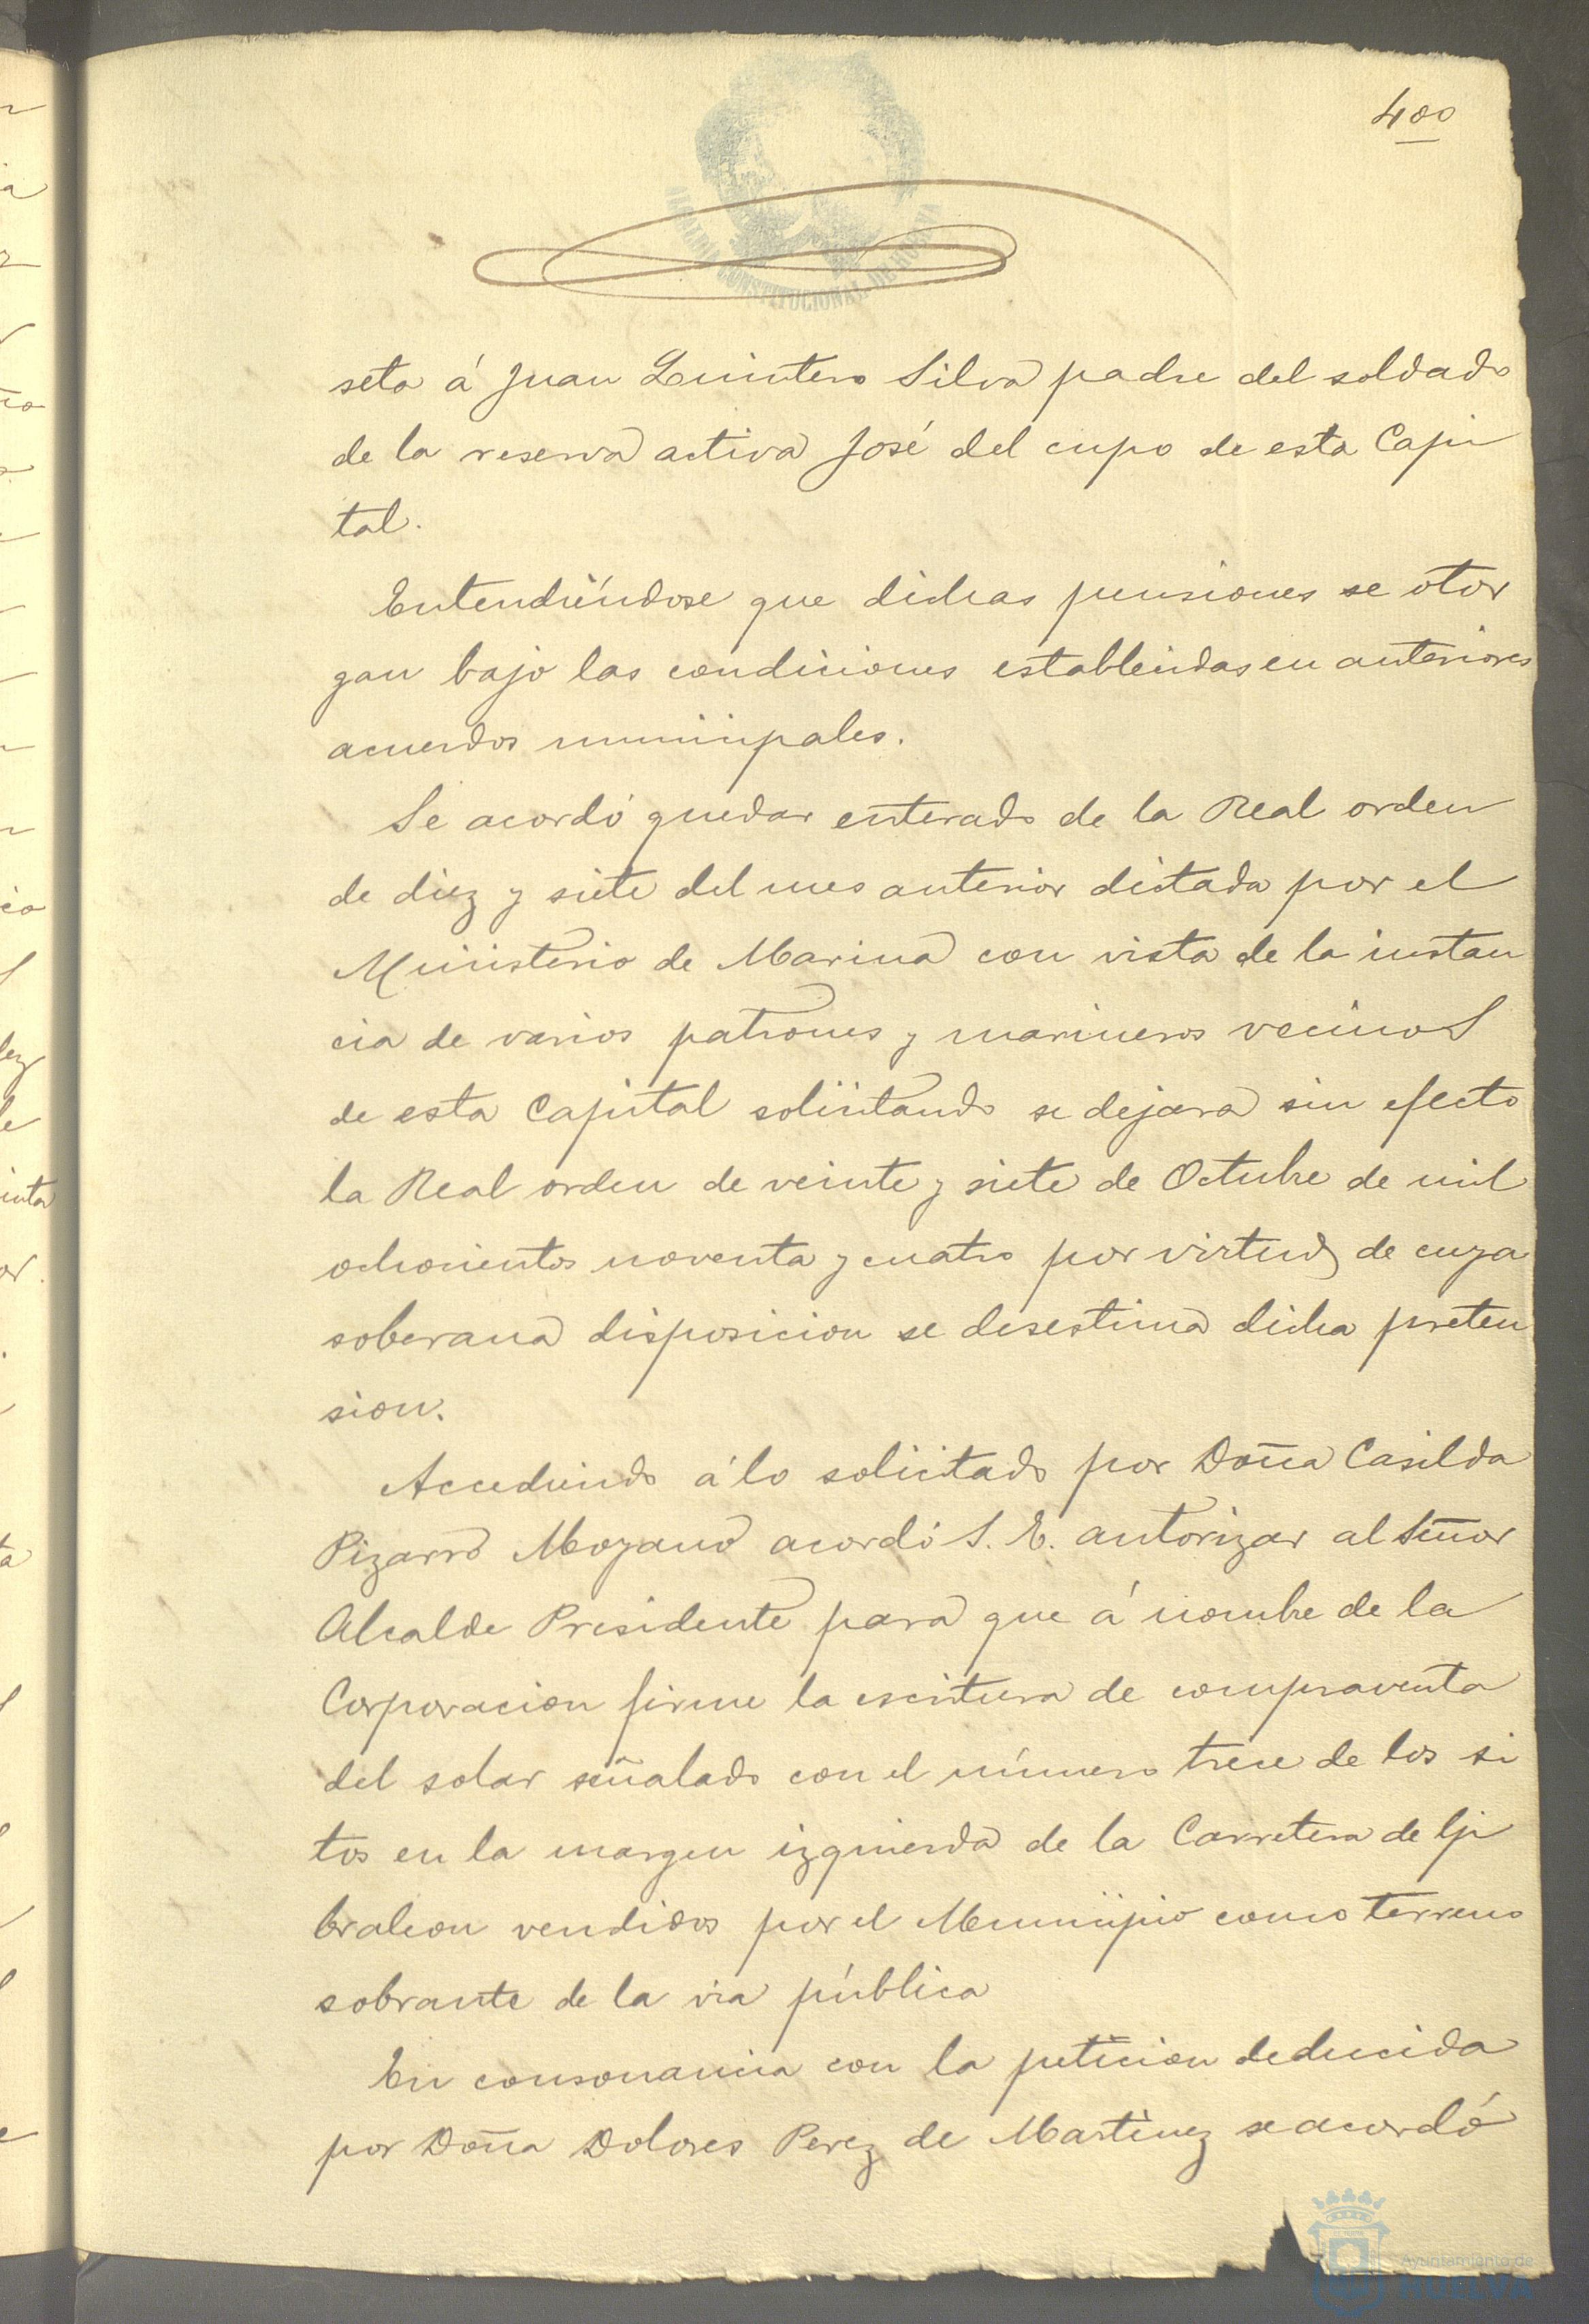 400
ALCALDIA CONSTITUCIONAL DE HUELVA
seta á Juan Quintero Silva padre del soldado
de la reserva activa José del cupo de esta Capi
tal.
Entendiéndose que dichas pensiones se otor
gan bajo las condiciones establecidas en anteriores
acuerdos municipales.
Se acordó quedar enterado de la Real orden
de diez y siete del mes anterior dictada por el
Ministerio de Marina con vista de la instan
cia de varios patrones y marineros vecinos
de esta Capital solicitando se dejara sin efecto
la Real orden de veinte y siete de Octubre de mil
ochocientos noventa y cuatro por virtud de cuya
soberana disposicion se desestima dicha preten
sion.
Accediendo á lo solicitado por Doña Casilda
Pizarro Moyano acordó S. E. autorizar al Señor
Alcalde Presidente para que á nombre de la
Corporacion firme la escritura de compraventa
del solar señalado con el número trece de los si
tos en la margen izquierda de la Carretera de Gi
braleon vendidos por el Municipio como terreno
sobrante de la via pública
En consonancia con la peticion deducida
por Doña Dolores Perez de Martinez se acordó
Ayuntamiento de
HUELVA